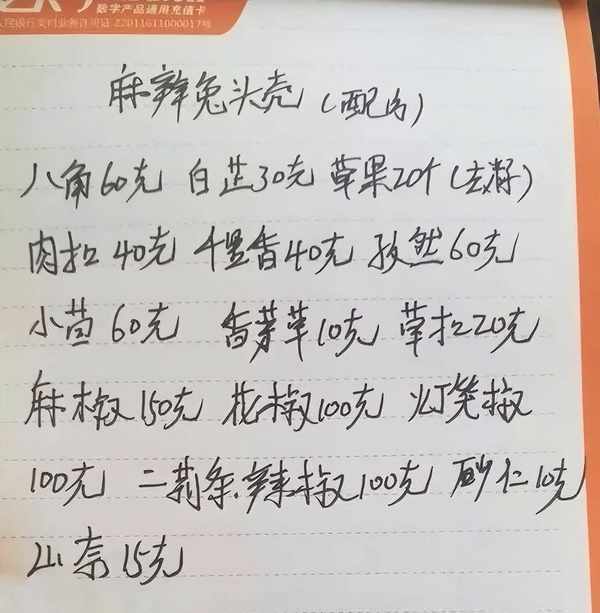 数字产品通用充值卡
人民银行支付业务许可证 22011611000017号
麻辣兔头壳(配方)
八角60克 白芷30克 草果20个(去籽)
肉扣40克 千里香40克 孜然60克
小茴60克 香茅草10克 草扣20克
麻椒150克 花椒100克 灯笼椒
100克 二荆条辣椒100克 砂仁10克
山奈15克